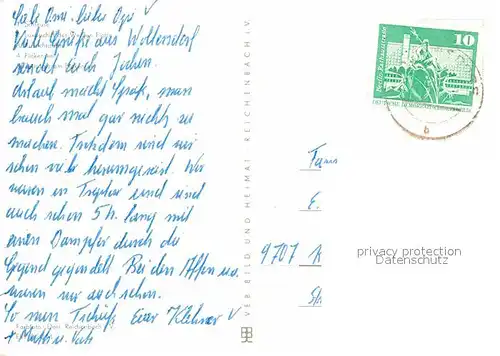 Liebe Omi, lieber Opi
Viele Grüße aus Woltersdorf
sendet euch Jochen.
Urlaub macht Spaß, man
brauch mal gar nichts zu
machen. Trotzdem sind wir
schon viel herumgereist. Wir
waren in Treptow und sind
auch schon 5 h lang mit
einen Dampfer durch die
Gegend gegondelt. Bei den Affen u.a.
waren wir auch schon.
So nun Tschüß Euer Kleiner
+ Mutti u. Vati
Reichenbach i. V.
VEB BILD UND HEIMAT REICHENBACH i. V.
10
DEUTSCHE DEMOKRATISCHE REPUBLIK
Fam
E.
9707 R
privacy protection
Datenschutz